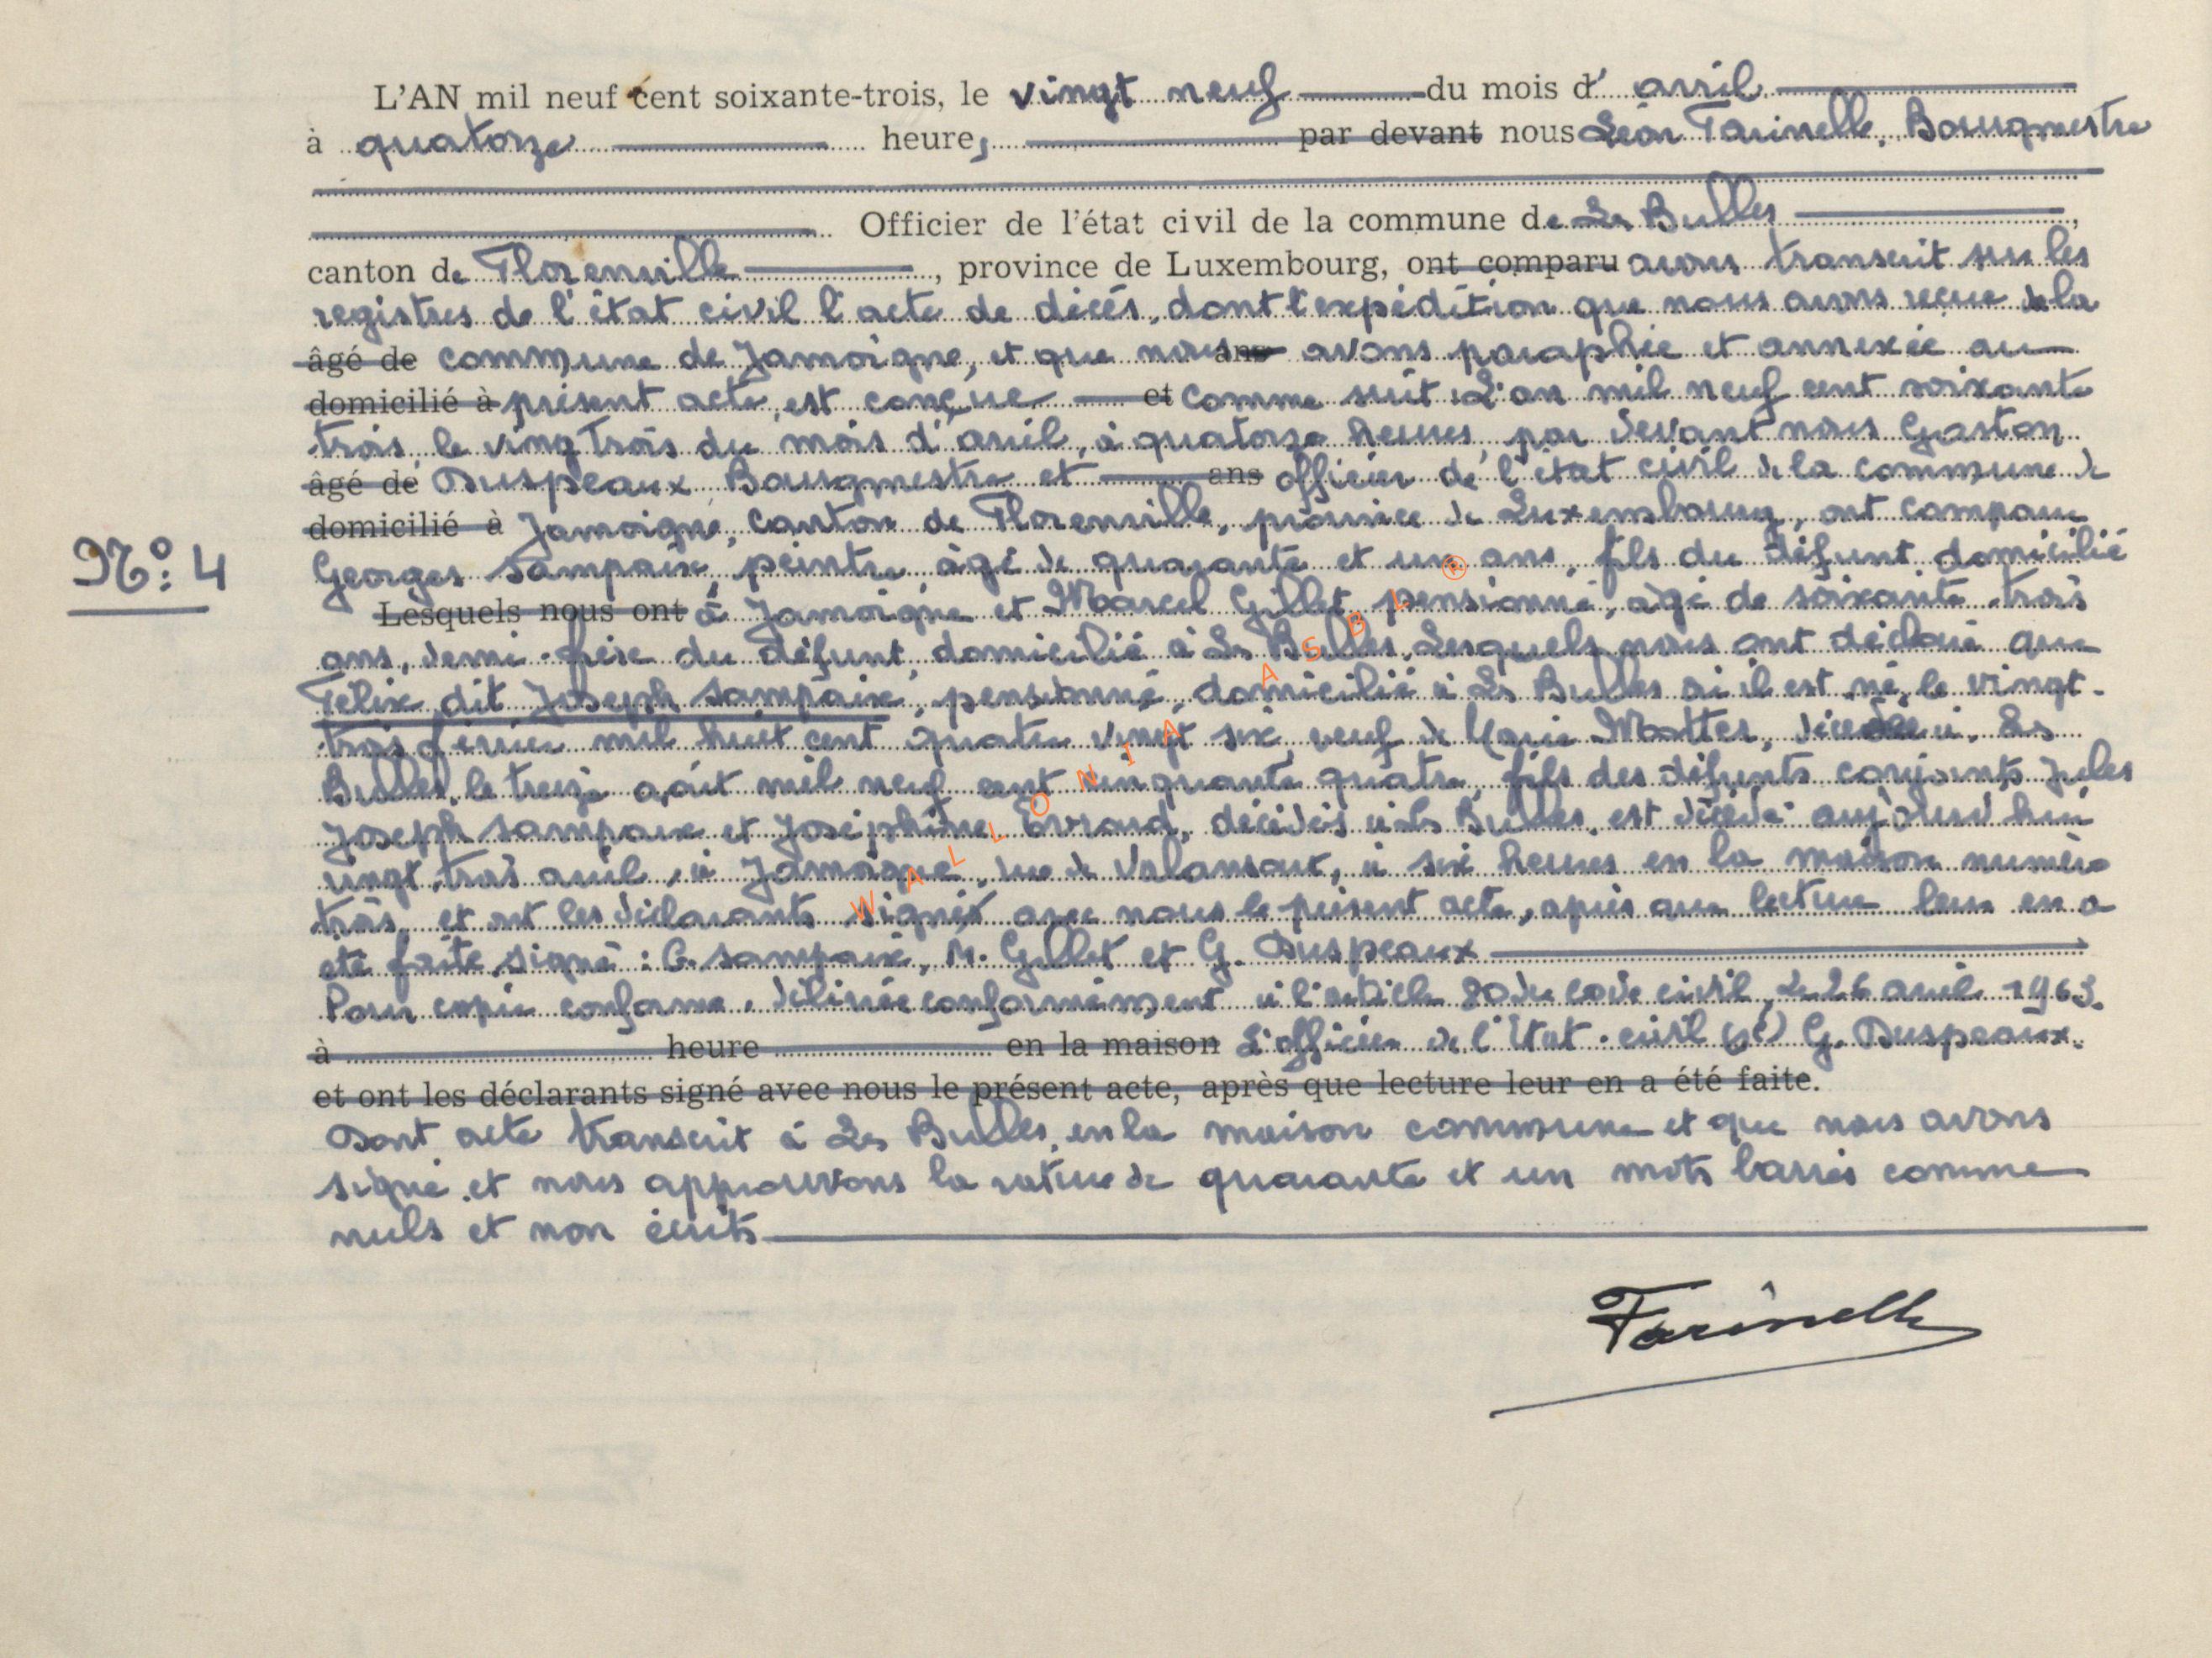 L'AN mil neuf cent soixante-trois, le vingt neuf du mois d' avril
à quatorze heures, par devant nous Léon Farinelle, Bourgmestre
Officier de l'état civil de la commune de Les Bulles,
canton de Florenville, province de Luxembourg, ont comparu avons transcrit sur les
registres de l'état civil l'acte de décés, dont l'expédition que nous avons reçue de la
âgé de commune de Jamoigne, et que nous ans avons paraphée et annexée au
domicilié à présent acte, est conçue et comme suit : L'an mil neuf cent soixante
trois, le vingt trois du mois d'avril, à quatorze heures, par devant nous Gaston
âgé de Duspeaux Bourgmestre et ans officier de l'état civil de la commune de
domicilié à Jamoigne, canton de Florenville, province de Luxembourg, ont comparu
N°: 4
Georges Sampaix, peintre, âgé de quarante et un ans, fils du défunt, domicilié
Lesquels nous ont à Jamoigne et Marcel Gillet, pensionné, âgé de soixante trois
ans, demi-frère du défunt, domicilié à Les Bulles, Lesquels nous ont déclaré que
Félix dit Joseph Sampaix, pensionné, domicilié à Les Bulles où il est né, le vingt-
trois février mil huit cent quatre vingt six, veuf de Marie Mottet, décédée à Les
Bulles, le treize août mil neuf cent cinquante quatre, fils des défunts conjoints Jules
Joseph Sampaix et Joséphine Evrard, décédés à Les Bulles, est décédé aujourd'hui
vingt trois avril, à Jamoigne, rue de Valansart, à six heures en la maison numéro
trois, et ont les déclarants signés avec nous le présent acte, après que lecture leur en a
été faite, signé : G. Sampaix, M. Gillet et G. Duspeaux
Pour copie conforme, délivrée conformément à l'article 80 du code civil, Le 26 avril 1963.
à heure en la maison L'officier de l'Etat-civil (sé) G. Duspeaux.
et ont les déclarants signé avec nous le présent acte, après que lecture leur en a été faite.
Dont acte transcrit à Les Bulles, en la maison commune et que nous avons
signé et nous approuvons la rature de quarante et un mots barrés comme
nuls et non écrits
Farinelle
WALLONIA ASBL ®